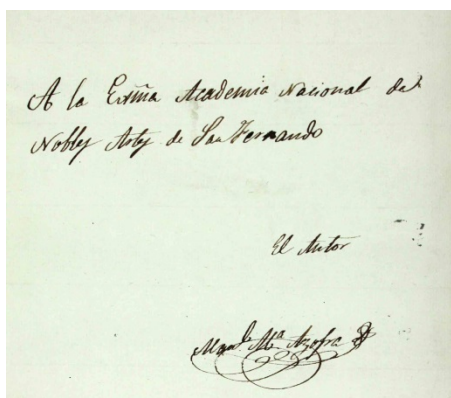 A la Exma Academia Nacional de
Nobles Artes de San Fernando
El Autor
Manl. Ma Azofra